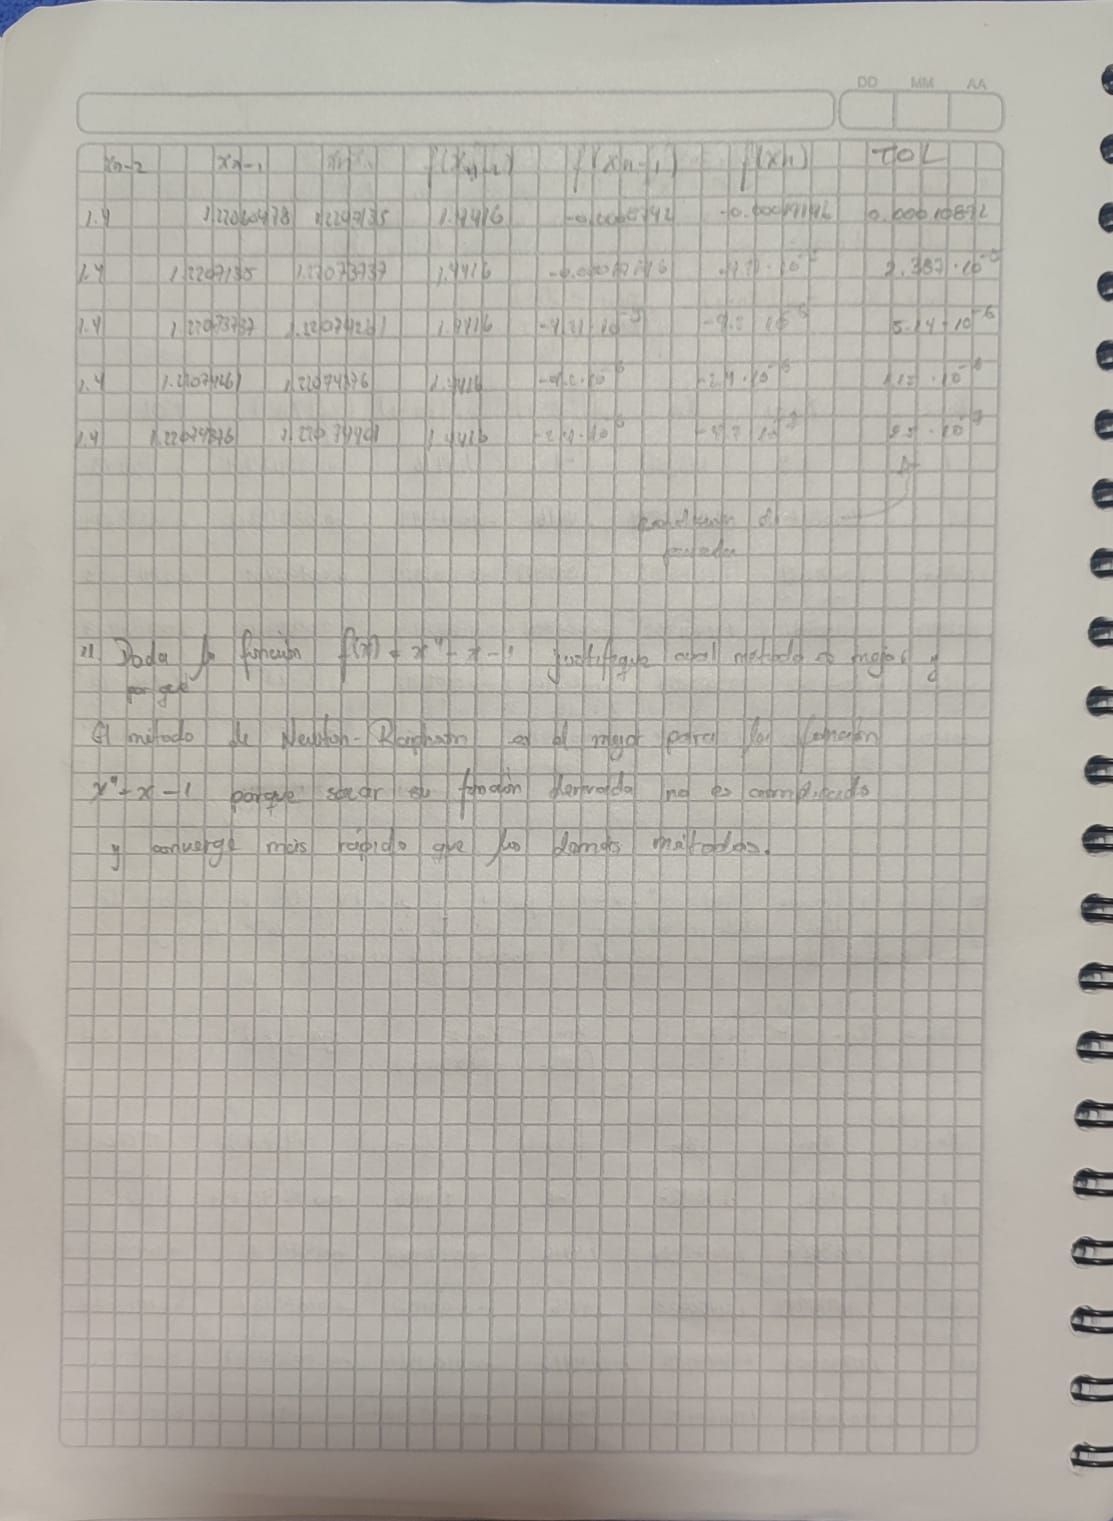 DD MM AA
xn-2 xn-1 xn f(xn-2) f(xn-1) f(xn) TOL
1.4 1.22060478 1.2207135 1.4416 -0.0008742 0.00010872
1.4 1.2207135 1.22073737 1.4416 2.387·10
1.4 1.22073737 1.22074261 1.4416 -4.21·10 5.14·10⁻⁶
1.4 1.22074261 1.22074376 1.4416
1.4 1.22074376 1.22074401 1.4416
condición de
parada
Dada la función f(x) = x⁴ - x - 1 justifique cual método es mejor y
por qué
El método de Newton-Raphson es el mejor para la función
x⁴ - x - 1 porque sacar su función derivada no es complicado
y converge más rápido que los demás métodos.